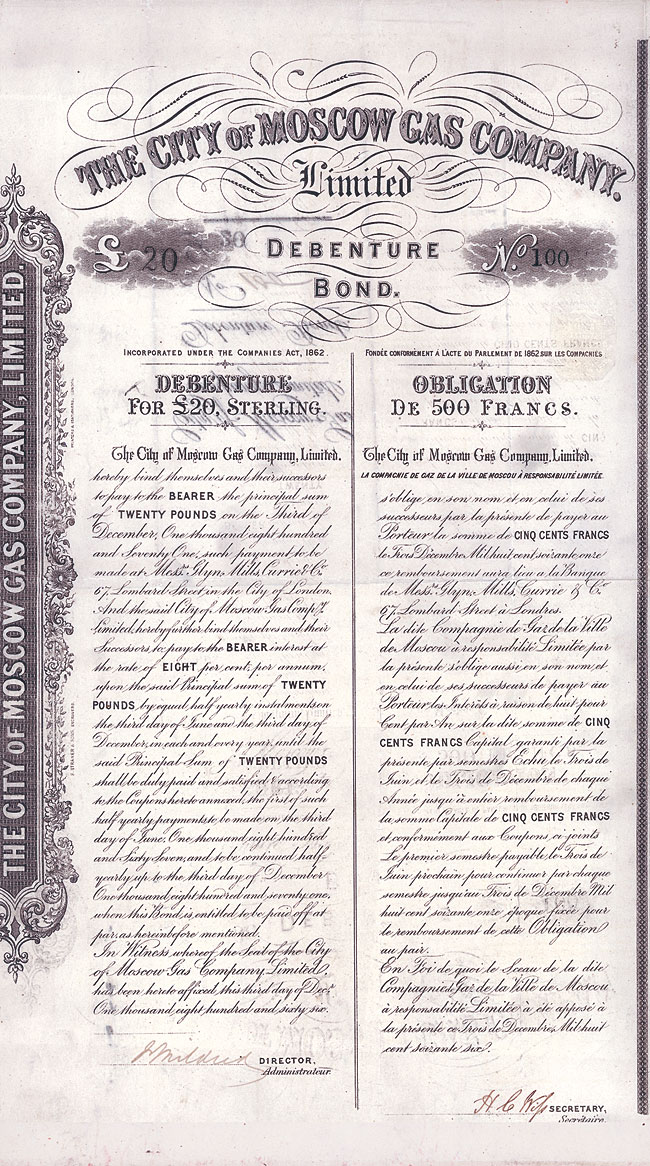 THE CITY OF MOSCOW GAS COMPANY.
Limited
£ 20
DEBENTURE
BOND.
No. 100
INCORPORATED UNDER THE COMPANIES ACT, 1862.
DEBENTURE
FOR £20, STERLING.
The City of Moscow Gas Company, Limited.
hereby bind themselves and their successors
to pay to the BEARER the principal sum
of TWENTY POUNDS on the Third of
December, One thousand eight hundred
and Seventy One, such payment to be
made at Messrs. Glyn, Mills, Currie & Co.
67, Lombard Street, in the City of London,
And the said City of Moscow Gas Compy.
Limited, hereby further bind themselves and their
Successors, to pay to the BEARER interest at
the rate of EIGHT per cent, per annum,
upon the said Principal sum of TWENTY
POUNDS by equal half yearly instalments on
the third day of June and the third day of
December, in each and every year, until the
said Principal Sum of TWENTY POUNDS
shall be duly paid and satisfied & according
to the Coupons hereto annexed, the first of such
half yearly payments to be made on the third
day of June, One thousand, eight hundred
and Sixty Seven, and, to be continued half-
yearly up to the third day of December
One thousand, eight hundred and seventy one,
when this Bond, is entitled to be paid off at
par, as hereinbefore mentioned.
In Witness whereof the Seal of the City
of Moscow Gas Company Limited,
has been hereto affixed, this third day of Decr.
One thousand, eight hundred and sixty six.
DIRECTOR,
Administrateur.
FONDÉE CONFORMÉMENT À L'ACTE DU PARLEMENT DE 1862 SUR LES COMPAGNIES
OBLIGATION
DE 500 FRANCS.
The City of Moscow Gas Company, Limited.
LA COMPAGNIE DE GAZ DE LA VILLE DE MOSCOU À RESPONSABILITÉ LIMITÉE.
s'oblige en son nom et en celui de ses
successeurs par la présente de payer au
Porteur la somme de CINQ CENTS FRANCS
le Trois Décembre Mil huit cent soixante onze
ce remboursement aura lieu a la Banque
de Messrs. Glyn, Mills, Currie & Co.
67, Lombard Street à Londres.
La dite Compagnie de Gaz de la Ville
de Moscou à responsabilité Limitée par
la présente s'oblige aussi en son nom et
en celui de ses successeurs de payer au
Porteur les Intérêts à raison de huit pour
Cent par An, sur la dite somme de CINQ
CENTS FRANCS Capital garanti par la
présente par semestres Echu le Trois de
Juin et le Trois de Décembre de chaque
Année jusqu'à entier remboursement de
la somme Capitale de CINQ CENTS FRANCS
et conformément aux Coupons ci-joints
Le premier semestre payable le Trois de
Juin prochain pour continuer par chaque
semestre jusqu'au Trois de Décembre Mil
huit cent soixante onze époque fixée pour
le remboursement de cette Obligation
au pair.
En Foi de quoi le Sceau de la dite
Compagnie de Gaz de la Ville de Moscou
à responsabilité Limitée à été apposé à
la présente ce Trois de Décembre Mil huit
cent soixante six.
SECRETARY,
Secrétaire.
THE CITY OF MOSCOW GAS COMPANY, LIMITED.